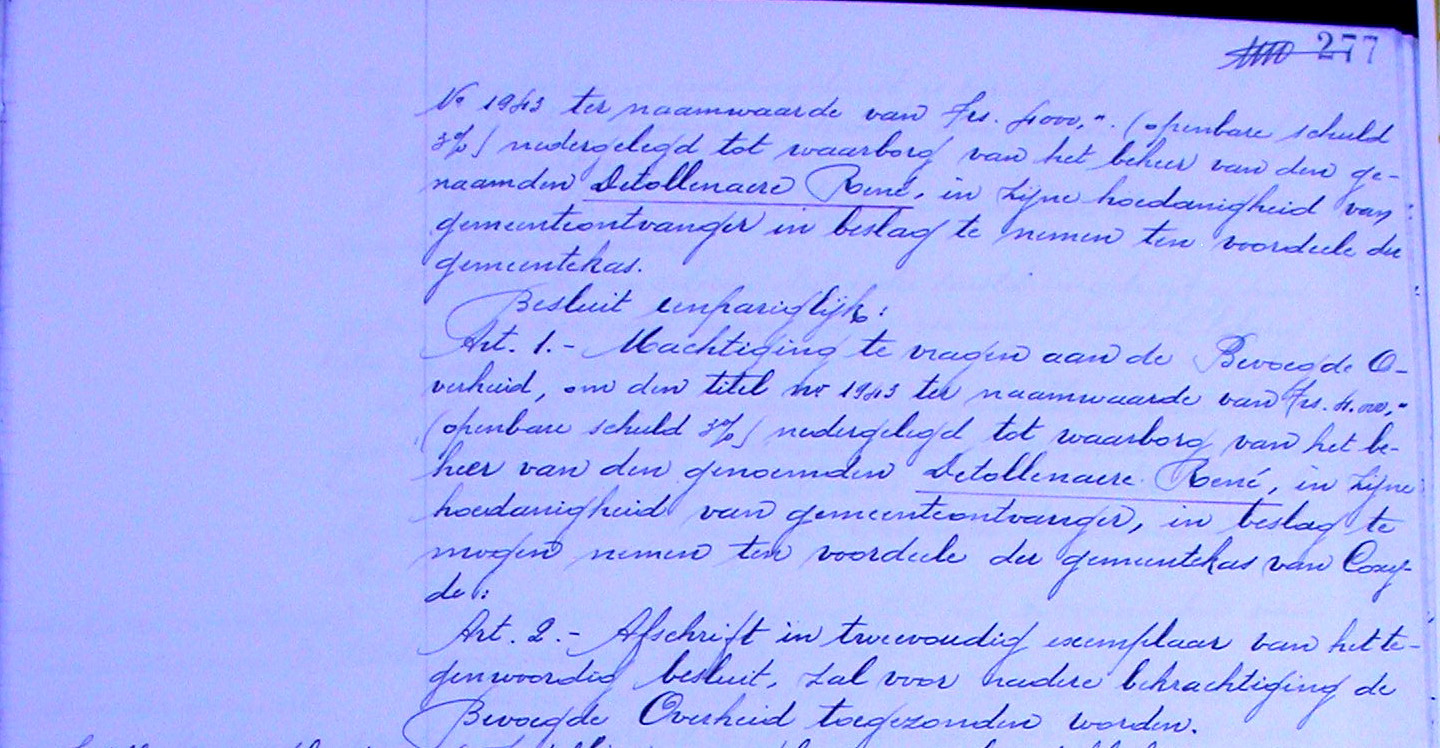 277
No 1943 ter naamwaarde van Frs. 4000,". (openbare schuld
3%) nedergelegd tot waarborg van het beheer van den ge-
naamden Detollenaere René, in zijne hoedanigheid van
gemeenteontvanger in beslag te nemen ten voordeele der
gemeentekas.
Besluit eenpariglijk:
Art. 1.- Machtiging te vragen aan de Bevoegde O-
verheid, om den titel nr 1943 ter naamwaarde van Frs. 4.000,"
(openbare schuld 3%) nedergelegd tot waarborg van het be-
heer van den genoemden Detollenaere René, in zijne
hoedanigheid van gemeenteontvanger, in beslag te
mogen nemen ten voordeele der gemeentekas van Coxy-
de:
Art. 2.- Afschrift in tweevoudig exemplaar van het te-
genwoordig besluit, zal voor nadere bekrachtiging de
Bevoegde Overheid toegezonden worden.